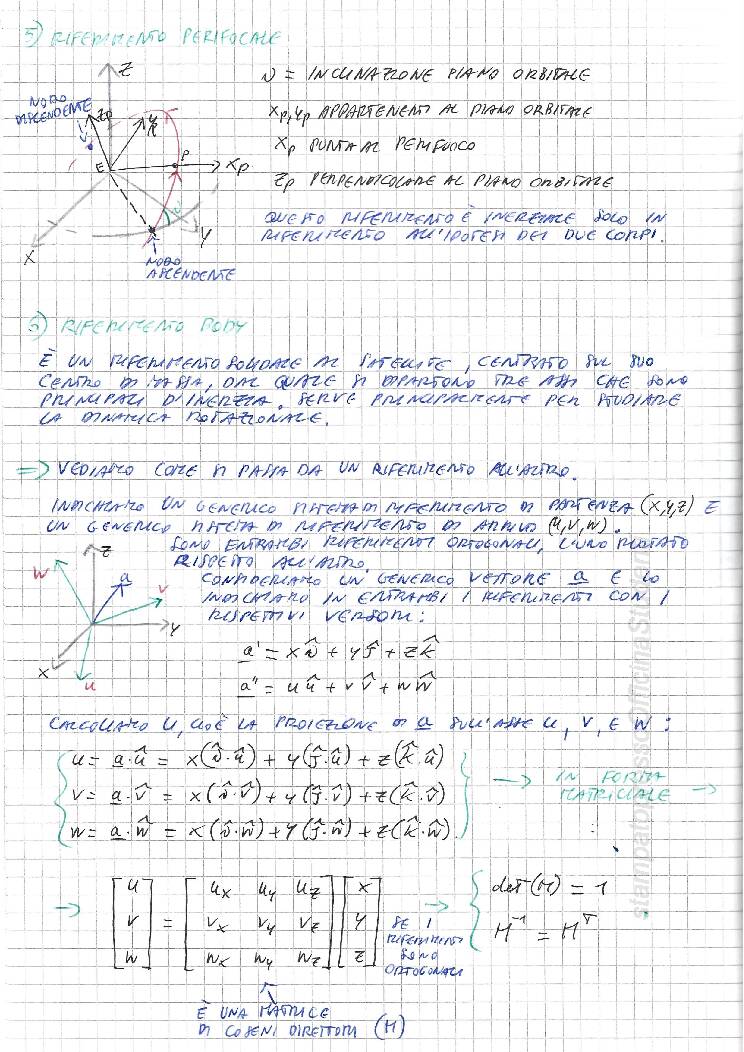 5) RIFERIMENTO PERIFOCALE
Z
NODO
DISCENDENTE
Zp
yp
E
P
Xp
i
Y
X
NODO
ASCENDENTE
i = INCLINAZIONE PIANO ORBITALE
Xp, yp APPARTENENTI AL PIANO ORBITALE
Xp PUNTA AL PERIFUOCO
Zp PERPENDICOLARE AL PIANO ORBITALE
QUESTO RIFERIMENTO È INERZIALE SOLO IN
RIFERIMENTO ALL'IPOTESI DEI DUE CORPI.
6) RIFERIMENTO BODY
È UN RIFERIMENTO SOLIDALE AL SATELLITE, CENTRATO SUL SUO
CENTRO DI MASSA, DAL QUALE SI DIPARTONO TRE ASSI CHE SONO
PRINCIPALI D'INERZIA. SERVE PRINCIPALMENTE PER STUDIARE
LA DINAMICA ROTAZIONALE.
=> VEDIAMO COME SI PASSA DA UN RIFERIMENTO ALL'ALTRO.
INDICHIAMO UN GENERICO SISTEMA DI RIFERIMENTO DI PARTENZA (X,Y,Z) E
UN GENERICO SISTEMA DI RIFERIMENTO DI ARRIVO (U,V,W).
SONO ENTRAMBI RIFERIMENTI ORTOGONALI, L'UNO RUOTATO
RISPETTO ALL'ALTRO.
CONSIDERIAMO UN GENERICO VETTORE a E LO
INDICHIAMO IN ENTRAMBI I RIFERIMENTI CON I
RISPETTIVI VERSORI:
Z
W
a
V
Y
X
U
a' = x î + y ĵ + z k̂
a'' = u û + v v̂ + w ŵ
CALCOLIAMO U, CIOÈ LA PROIEZIONE DI a SULL'ASSE U, V, E W:
u = a·û = x(î·û) + y(ĵ·û) + z(k̂·û)
v = a·v̂ = x(î·v̂) + y(ĵ·v̂) + z(k̂·v̂)
w = a·ŵ = x(î·ŵ) + y(ĵ·ŵ) + z(k̂·ŵ)
→ IN FORMA
MATRICIALE →
→ [u] = [ux uy uz] [x]
[v] [vx vy vz] [y]
[w] [wx wy wz] [z]
SE I
RIFERIMENTI
SONO
ORTOGONALI
→ det(M) = 1
M⁻¹ = Mᵀ
È UNA MATRICE
DI COSENI DIRETTORI (M)